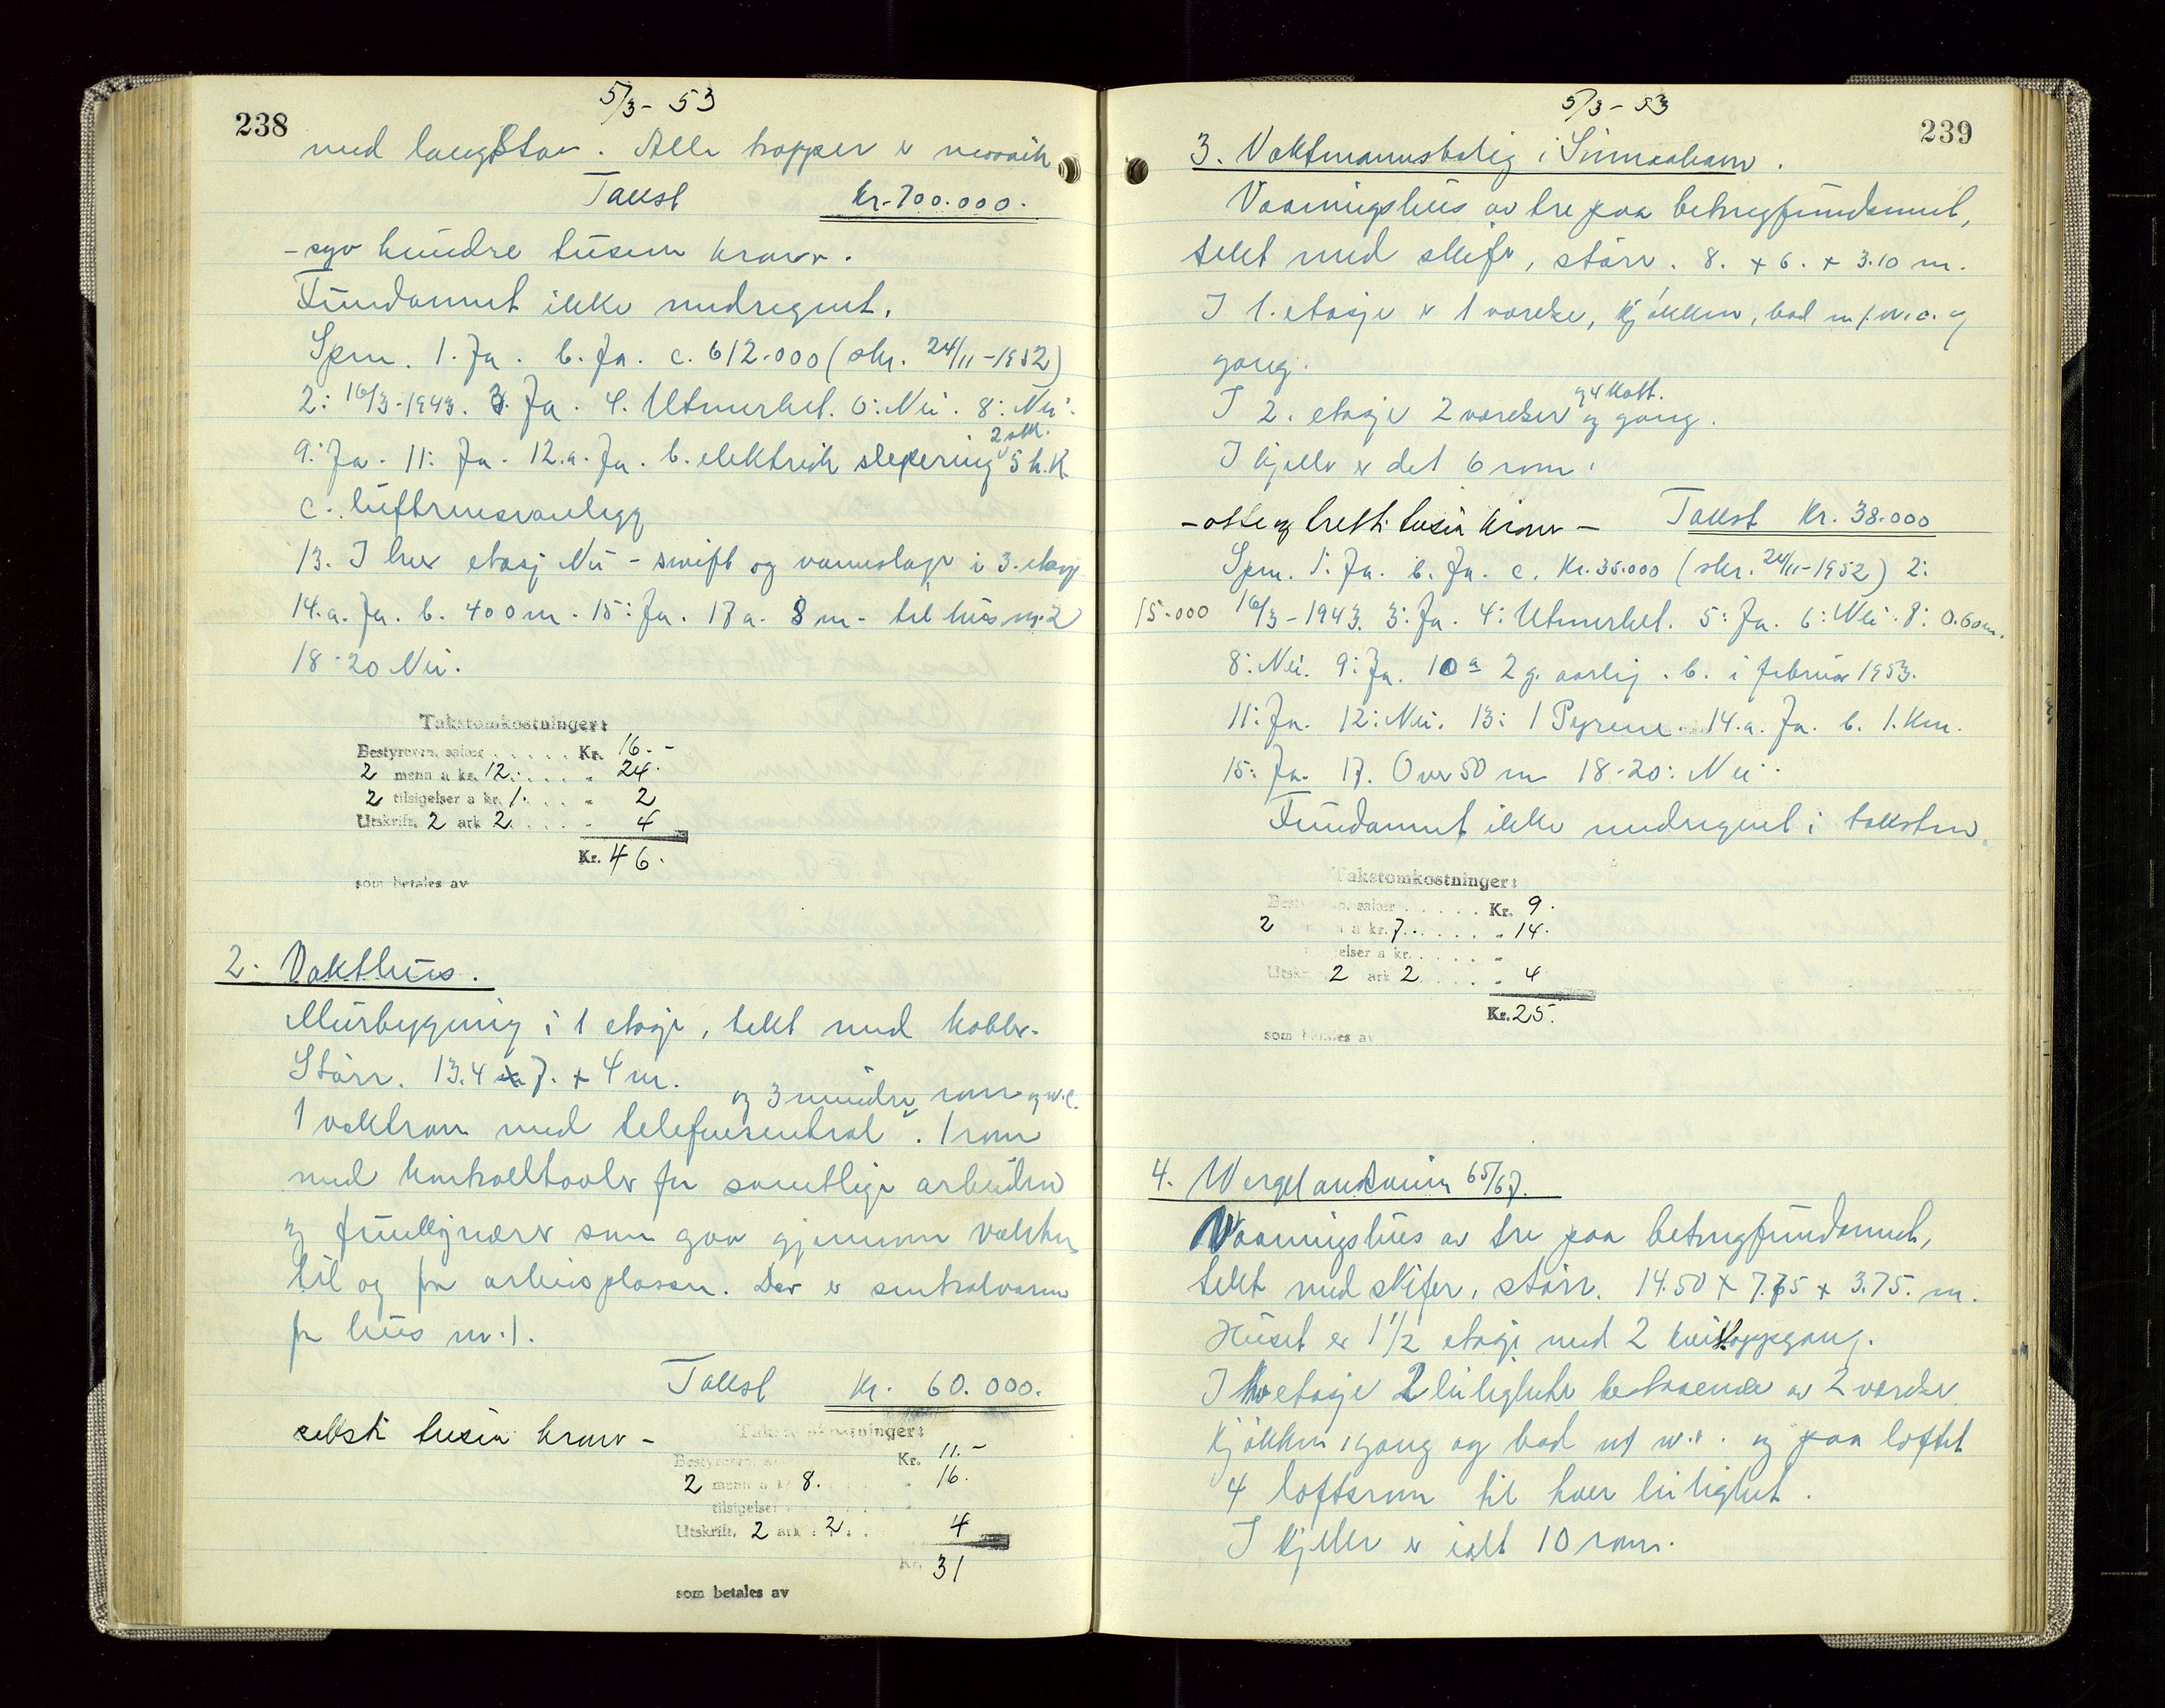 238
5/3- 53
med langstav. Alle trapper er massiv
Takst Kr. 700.000.
- syv hundre tusen kroner.
Fundament ikke medregnet.
Spm. 1. Ja. b. Ja. c. 612.000 (skr. 24/11-1952)
2: 16/3-1943. 3. Ja. 4. Utmerket. 6: Nei. 8: Nei.
9: Ja. 11: Ja. 12.a. Ja. b. elektrisk 2 stk. 5 h.K
c. luftrensranlegg
13. I hver etasj Nu - swift og vannslage i 3. etasje
14.a. Ja. b. 400 m. 15: Ja. 17 a. 8 m. til hus nr. 2
18-20 Nei.
Takstomkostninger:
Bestyreren, salær . . . . . Kr. 16.-
2 menn a kr. 12. . . . . " 24.
2 tilsigelser a kr. 1. . . . " 2
Utskrift, 2 ark 2. . . . . " 4
Kr. 46.
som betales av
2. Vakthus.
Murbygning i 1 etasje, tekt med kobber.
Størr. 13.4 x 7. x 4 m.
og 3 mindre rom og w.c.
1 vaktrom med telefonsentral. 1 rom
med kontrolltavler for samtlige arbeidere
og funksjonærer som gaar gjennom vakten
til og fra arbeidsplassen. Der er sentralvarme
fra hus nr. 1.
Takst Kr. 60.000.
seksti tusen kroner -
Takstomkostninger:
Bestyreren, salær Kr. 11.-
2 menn a kr. 8. 16.
tilsigelser
Utskrift, 2 ark 2. . . 4
Kr. 31
som betales av
239
5/3- 53
3. Vaktmannsbolig i
Vaaningshus av tre paa betongfundament,
tekt med skifer, størr. 8. x 6. x 3.10 m.
I 1. etasje er 1 værelse, kjøkken, bad m/ w.c. og
gang.
I 2. etasje 2 værelser og 4 kott. og gang.
I kjeller er det 6 rom.
- otte og tretti tusen kroner - Takst Kr. 38.000
Spm. 1: Ja. b. Ja. c. Kr. 35.000 (skr. 24/11-1952) 2:
15.000 16/3-1943. 3: Ja. 4: Utmerket. 5: Ja. 6: Nei. 8: 0.60m.
8: Nei. 9: Ja. 10 a 2 g. aarlig. b. i februar 1953.
11: Ja. 12: Nei. 13: 1 Pyrene. 14.a. Ja. b. 1. Km.
15: Ja. 17. Over 50 m 18-20: Nei.
Fundament ikke medregnet i taksten.
Takstomkostninger:
Bestyreren, salær . . . . . Kr. 9.
2 menn a kr. 7. . . . . " 14.
tilsigelser a kr. . . . . "
Utskr 2 ark 2. . . . . " 4
Kr. 25.
som betales av
4. Wergelandsveien 65/67.
Vaaningshus av tre paa betongfundament,
tekt med skifer, størr. 14.50 x 7.75 x 3.75. m.
Huset er 1 1/2 etasje med 2 kvistoppgang.
I hver etasje 2 leiligheter bestaaende av 2 værelser
kjøkken, gang og bad m/ w.c. og paa loftet
4 loftsrom til hver leilighet.
I kjeller er ialt 10 rom.